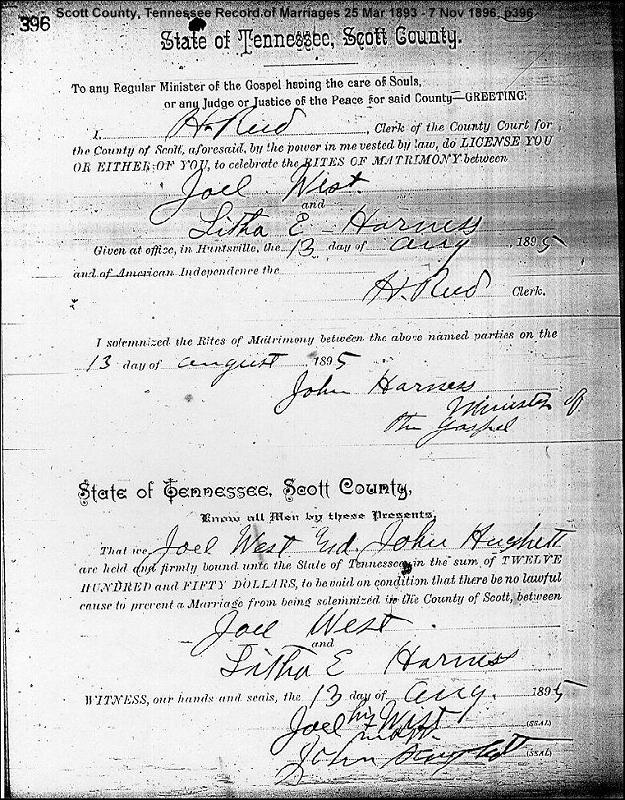 Scott County, Tennessee Record of Marriages 25 Mar 1893 - 7 Nov 1896, p396
396
State of Tennessee, Scott County.
To any Regular Minister of the Gospel having the care of Souls,
or any Judge or Justice of the Peace for said County—GREETING:
I, H. Reed, Clerk of the County Court for
the County of Scott, aforesaid, by the power in me vested by law, do LICENSE YOU
OR EITHER OF YOU, to celebrate the RITES OF MATRIMONY between
Joel West
and
Litha E Harness
Given at office, in Huntsville, the 13 day of Aug, 1895
and of American Independence the
H. Reed Clerk.
I solemnized the Rites of Matrimony between the above named parties on the
13 day of August, 1895
John Harness
Minister of
the Gospel
State of Tennessee, Scott County,
Know all Men by these Presents,
That we, Joel West and John Hughett
are held and firmly bound unto the State of Tennessee, in the sum of TWELVE
HUNDRED and FIFTY DOLLARS, to be void on condition that there be no lawful
cause to prevent a Marriage from being solemnized in the County of Scott, between
Joel West
and
Litha E Harness
WITNESS, our hands and seals, the 13 day of Aug. 1895
Joel his West (SEAL)
mark
John Hughett (SEAL)